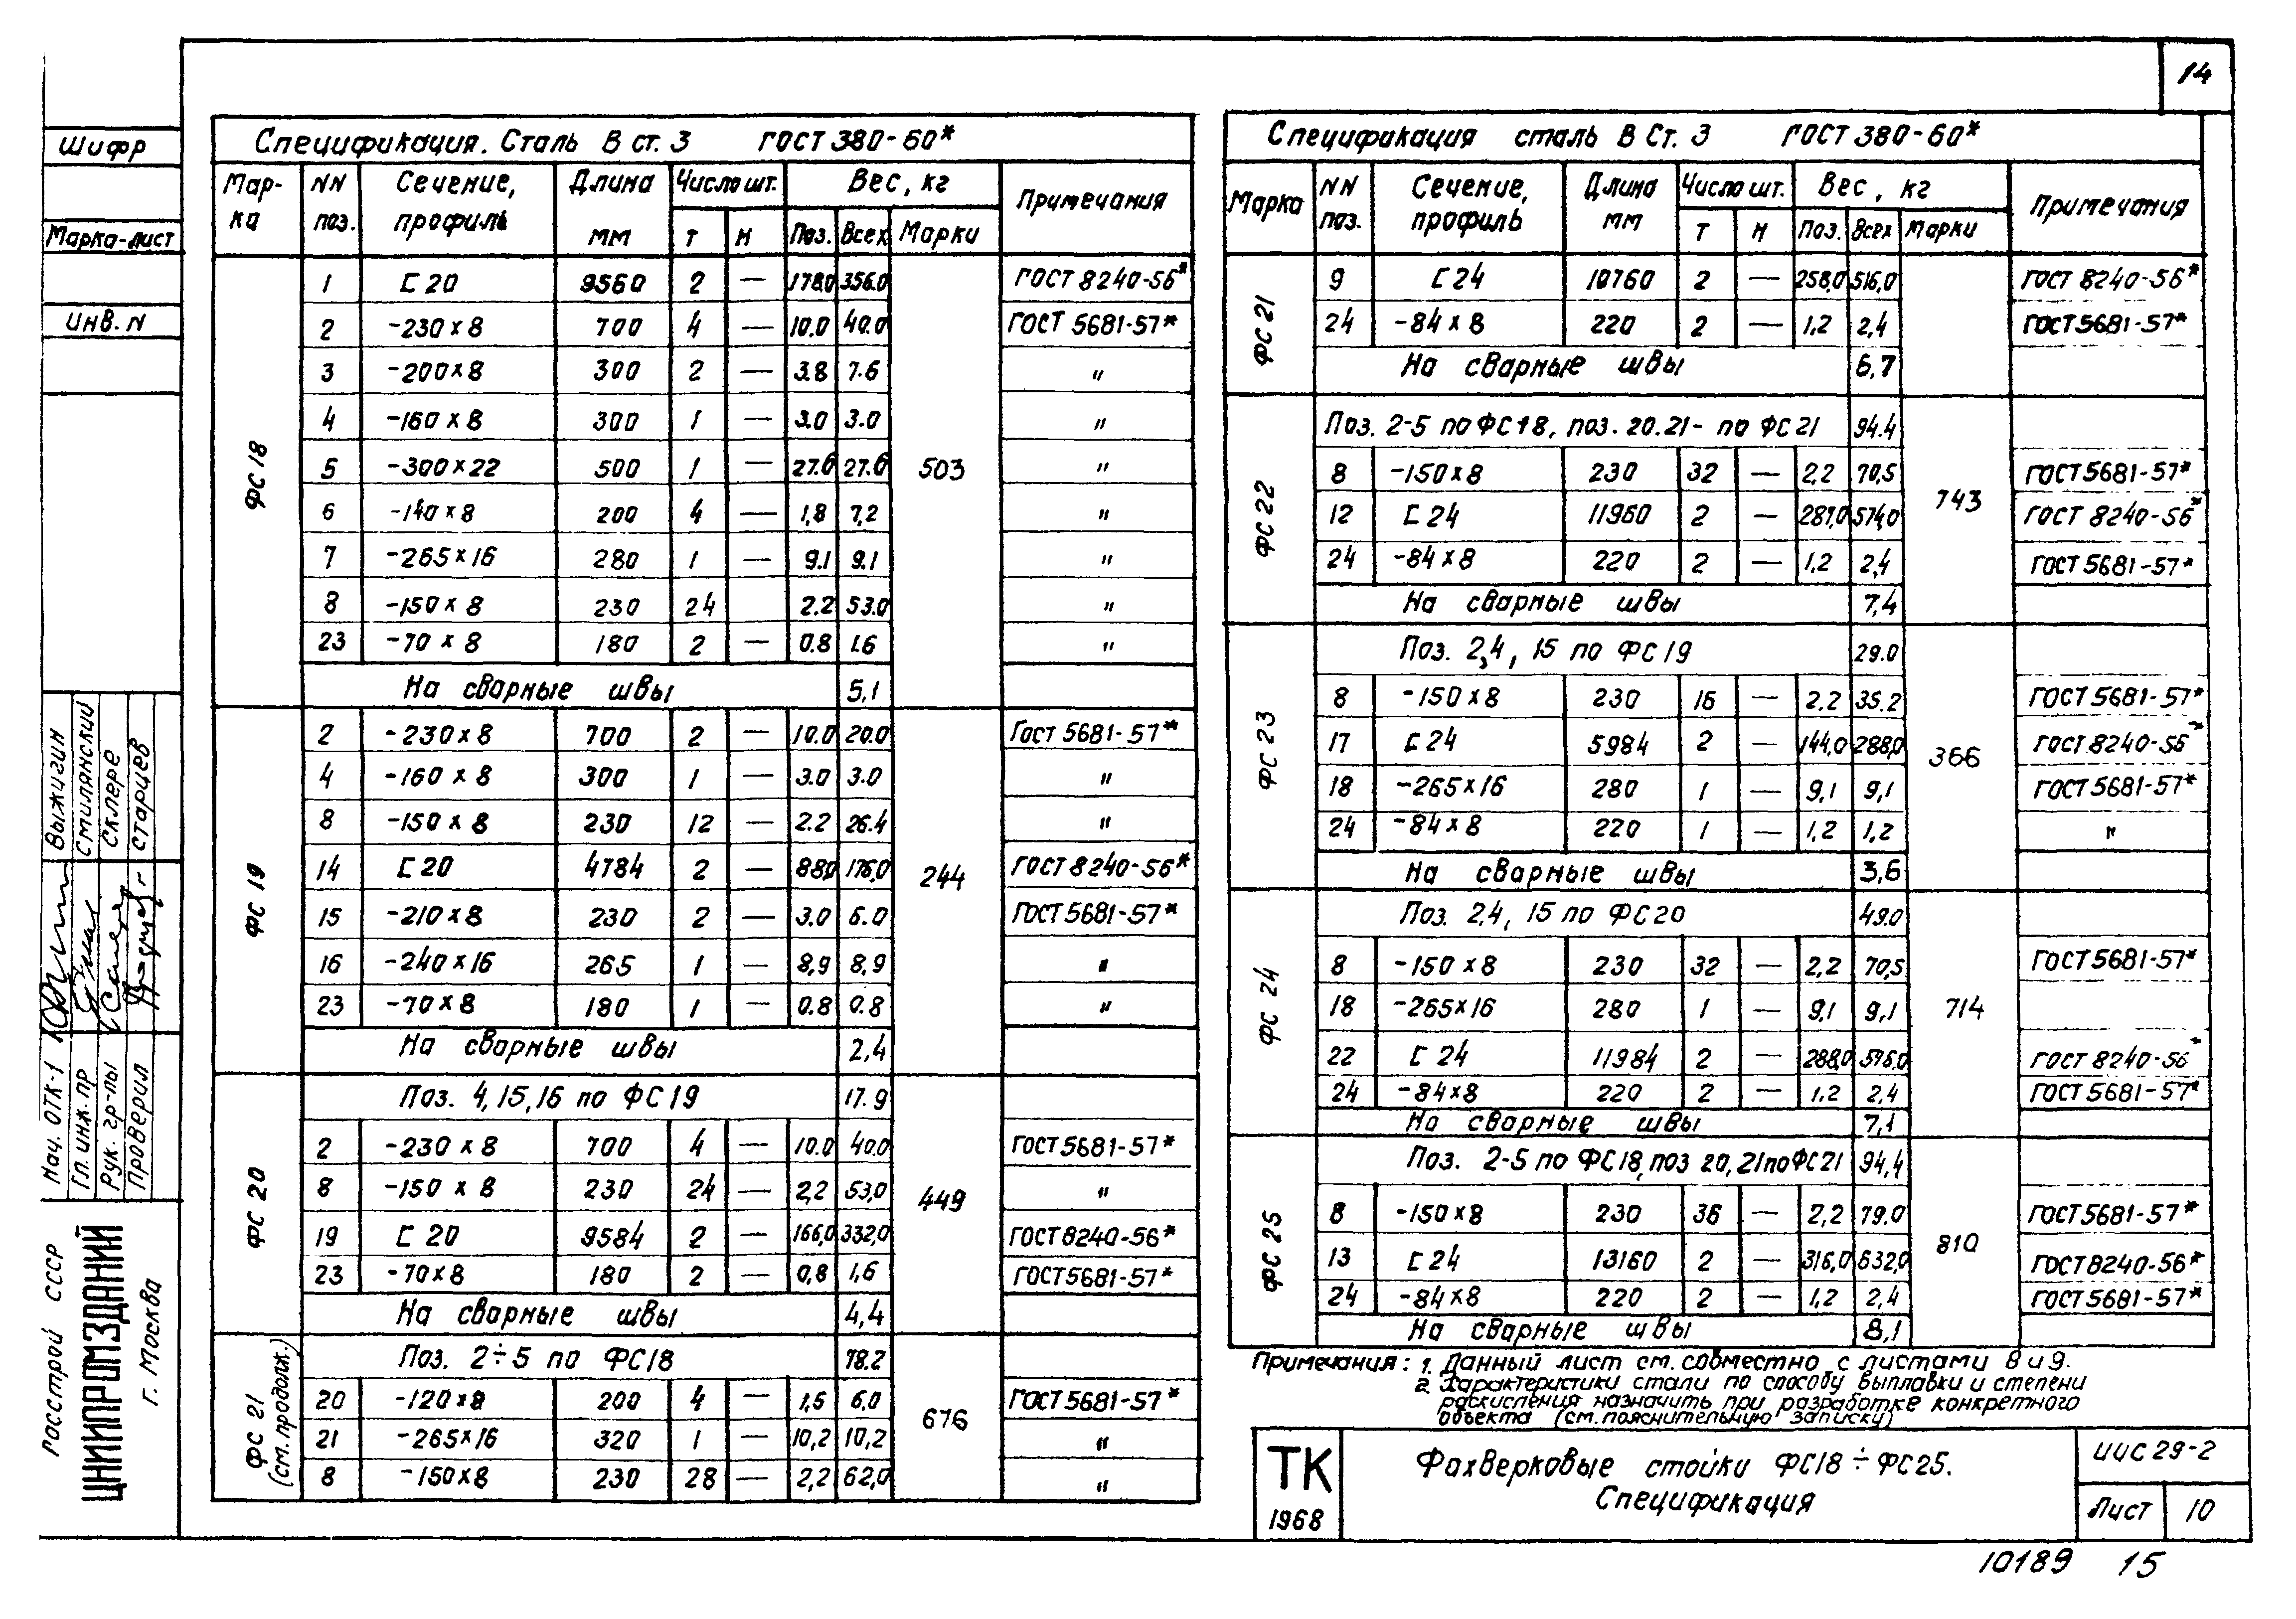 14
Шифр
Марка-лист
Инв. N
Нач. ОТК-1 Выжигин
Гл. инж. пр Смилянский
Рук. гр-пы Склере
Проверил Старцев
Госстрой СССР
ЦНИИПРОМЗДАНИЙ
г. Москва
Спецификация. Сталь В ст. 3 ГОСТ 380-60*
Мар-ка NN поз. Сечение, профиль Длина мм Число шт. Вес, кг Примечания
Т Н Поз. Всех Марки
ФС 18 503
1 [ 20 9560 2 — 178.0 356.0 ГОСТ 8240-56*
2 -230 х 8 700 4 — 10.0 40.0 ГОСТ 5681-57*
3 -200х8 300 2 — 3.8 7.6 "
4 -160 х 8 300 1 — 3.0 3.0 "
5 -300х22 500 1 — 27.6 27.6 "
6 -140 х 8 200 4 — 1,8 7,2 "
7 -265х16 280 1 — 9.1 9.1 "
8 -150 х 8 230 24 2.2 53.0 "
23 -70 х 8 180 2 — 0.8 1.6 "
На сварные швы 5,1
ФС 19 244
2 -230х8 700 2 — 10.0 20.0 Гост 5681-57*
4 -160 х 8 300 1 — 3.0 3.0 "
8 -150 х 8 230 12 — 2.2 26.4 "
14 [ 20 4784 2 — 88,0 176,0 ГОСТ 8240-56*
15 -210 х 8 230 2 — 3.0 6.0 ГОСТ 5681-57*
16 -240х16 265 1 — 8,9 8,9 "
23 -70х8 180 1 — 0.8 0.8 "
На сварные швы 2,4
ФС 20 449
Поз. 4,15,16 по ФС19 17.9
2 -230 х 8 700 4 — 10.0 40.0 ГОСТ 5681-57*
8 -150 х 8 230 24 — 2,2 53,0 "
19 [ 20 9584 2 — 166,0 332,0 ГОСТ 8240-56*
23 -70х8 180 2 — 0,8 1,6 ГОСТ 5681-57*
На сварные швы 4,4
ФС 21 (см. продолж.) 676
Поз. 2÷5 по ФС18 78.2
20 -120х8 200 4 — 1,5 6,0 ГОСТ 5681-57*
21 -265х16 320 1 — 10,2 10,2 "
8 -150х8 230 28 — 2,2 62,0 "
Спецификация сталь В Ст. 3 ГОСТ 380-60*
Марка NN поз. Сечение, профиль Длина мм Число шт. Вес, кг Примечания
Т Н Поз. Всех Марки
ФС 21
9 [ 24 10760 2 — 258,0 516,0 ГОСТ 8240-56*
24 -84 х 8 220 2 — 1,2 2,4 ГОСТ 5681-57*
На сварные швы 6,7
ФС 22 743
Поз. 2-5 по ФС18, поз. 20.21- по ФС21 94.4
8 -150х8 230 32 — 2,2 70,5 ГОСТ 5681-57*
12 [ 24 11960 2 — 287,0 574,0 ГОСТ 8240-56*
24 -84х8 220 2 — 1,2 2,4 ГОСТ 5681-57*
На сварные швы 7,4
ФС 23 366
Поз. 2,4, 15 по ФС19 29.0
8 -150х8 230 16 — 2.2 35.2 ГОСТ 5681-57*
17 [ 24 5984 2 — 144,0 288,0 ГОСТ 8240-56*
18 -265х16 280 1 — 9,1 9,1 ГОСТ 5681-57*
24 -84х8 220 1 — 1,2 1,2 "
На сварные швы 3,6
ФС 24 714
Поз. 2,4, 15 по ФС20 49.0
8 -150 х 8 230 32 — 2,2 70,5 ГОСТ 5681-57*
18 -265х16 280 1 — 9,1 9,1
22 [ 24 11984 2 — 288,0 576,0 ГОСТ 8240-56*
24 -84х8 220 2 — 1,2 2,4 ГОСТ 5681-57*
На сварные швы 7,1
ФС 25 810
Поз. 2-5 по ФС18, поз 20,21 по ФС21 94,4
8 -150х8 230 36 — 2,2 79.0 ГОСТ 5681-57*
13 [ 24 13160 2 — 316,0 632,0 ГОСТ 8240-56*
24 -84х8 220 2 — 1,2 2,4 ГОСТ 5681-57*
На сварные швы 8,1
Примечания: 1. Данный лист см. совместно с листами 8 и 9.
2. Характеристики стали по способу выплавки и степени
раскисления назначить при разработке конкретного
объекта (см. пояснительную записку)
ТК
1968
Фахверковые стойки ФС18÷ФС25.
Спецификация
ИИС 29-2
Лист 10
10189 15